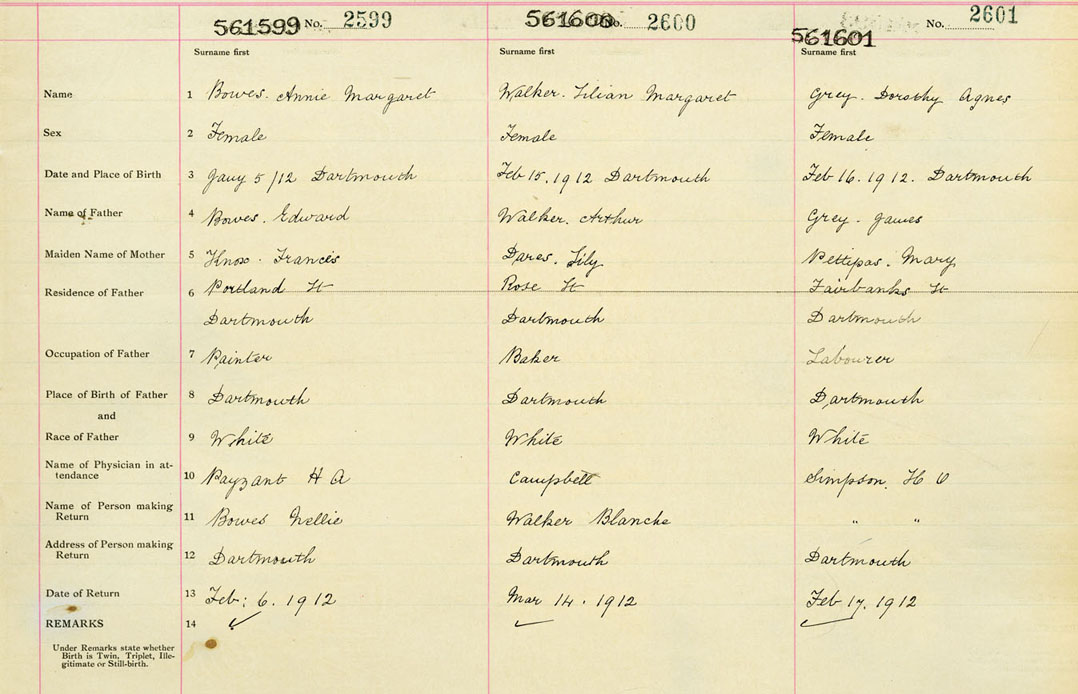 561599 No. 2599 561600 No. 2600 561601 No. 2601
Surname first Surname first Surname first
Name 1 Bowes. Annie Margaret Walker. Lilian Margaret Grey. Dorothy Agnes
Sex 2 Female Female Female
Date and Place of Birth 3 Jany 5/12 Dartmouth Feb 15, 1912 Dartmouth Feb 16. 1912. Dartmouth
Name of Father 4 Bowes. Edward Walker. Arthur Grey. James
Maiden Name of Mother 5 Knox. Francis Dares. Lily Pettipas. Mary
Residence of Father 6 Portland St Rose St Fairbanks St
Dartmouth Dartmouth Dartmouth
Occupation of Father 7 Painter Baker Labourer
Place of Birth of Father 8 Dartmouth Dartmouth Dartmouth
and
Race of Father 9 White White White
Name of Physician in at-
tendance 10 Payzant H A Campbell Simpson. H O
Name of Person making
Return 11 Bowes Nellie Walker Blanche " "
Address of Person making
Return 12 Dartmouth Dartmouth Dartmouth
Date of Return 13 Feb: 6. 1912 Mar 14. 1912 Feb 17. 1912
REMARKS 14 ✓ ✓ ✓
Under Remarks state whether
Birth is Twin, Triplet, Ille-
gitimate or Still-birth.